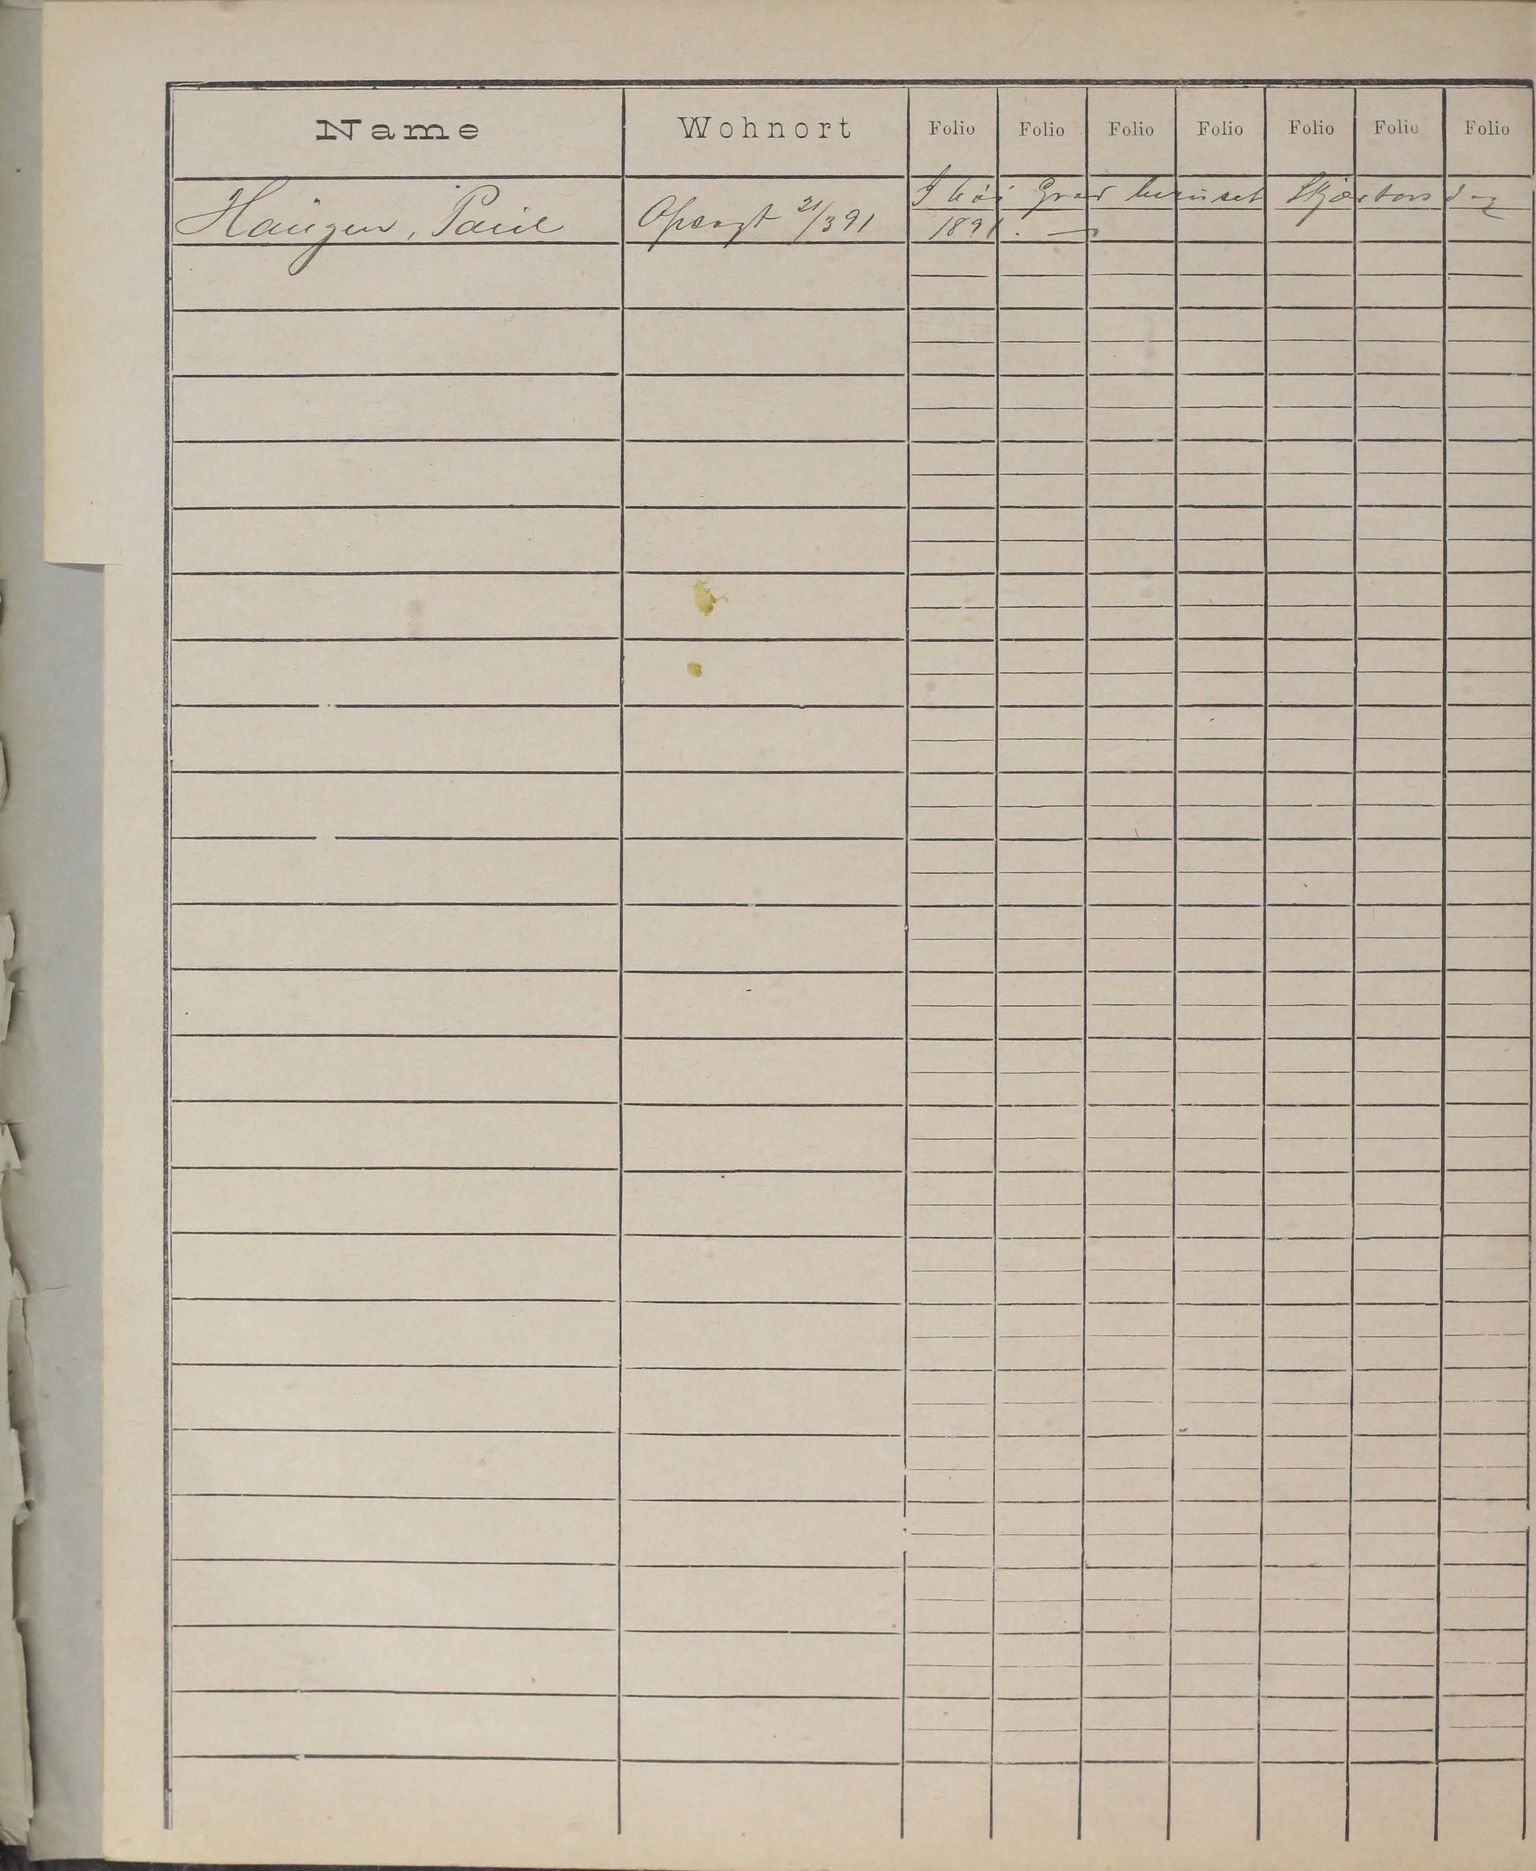 Name Wohnort Folio Folio Folio Folio Folio Folio Folio
Haugen, Paul Opsagt 21/3 91 I høi Grad beruset Skjærtorsdag
1891. —